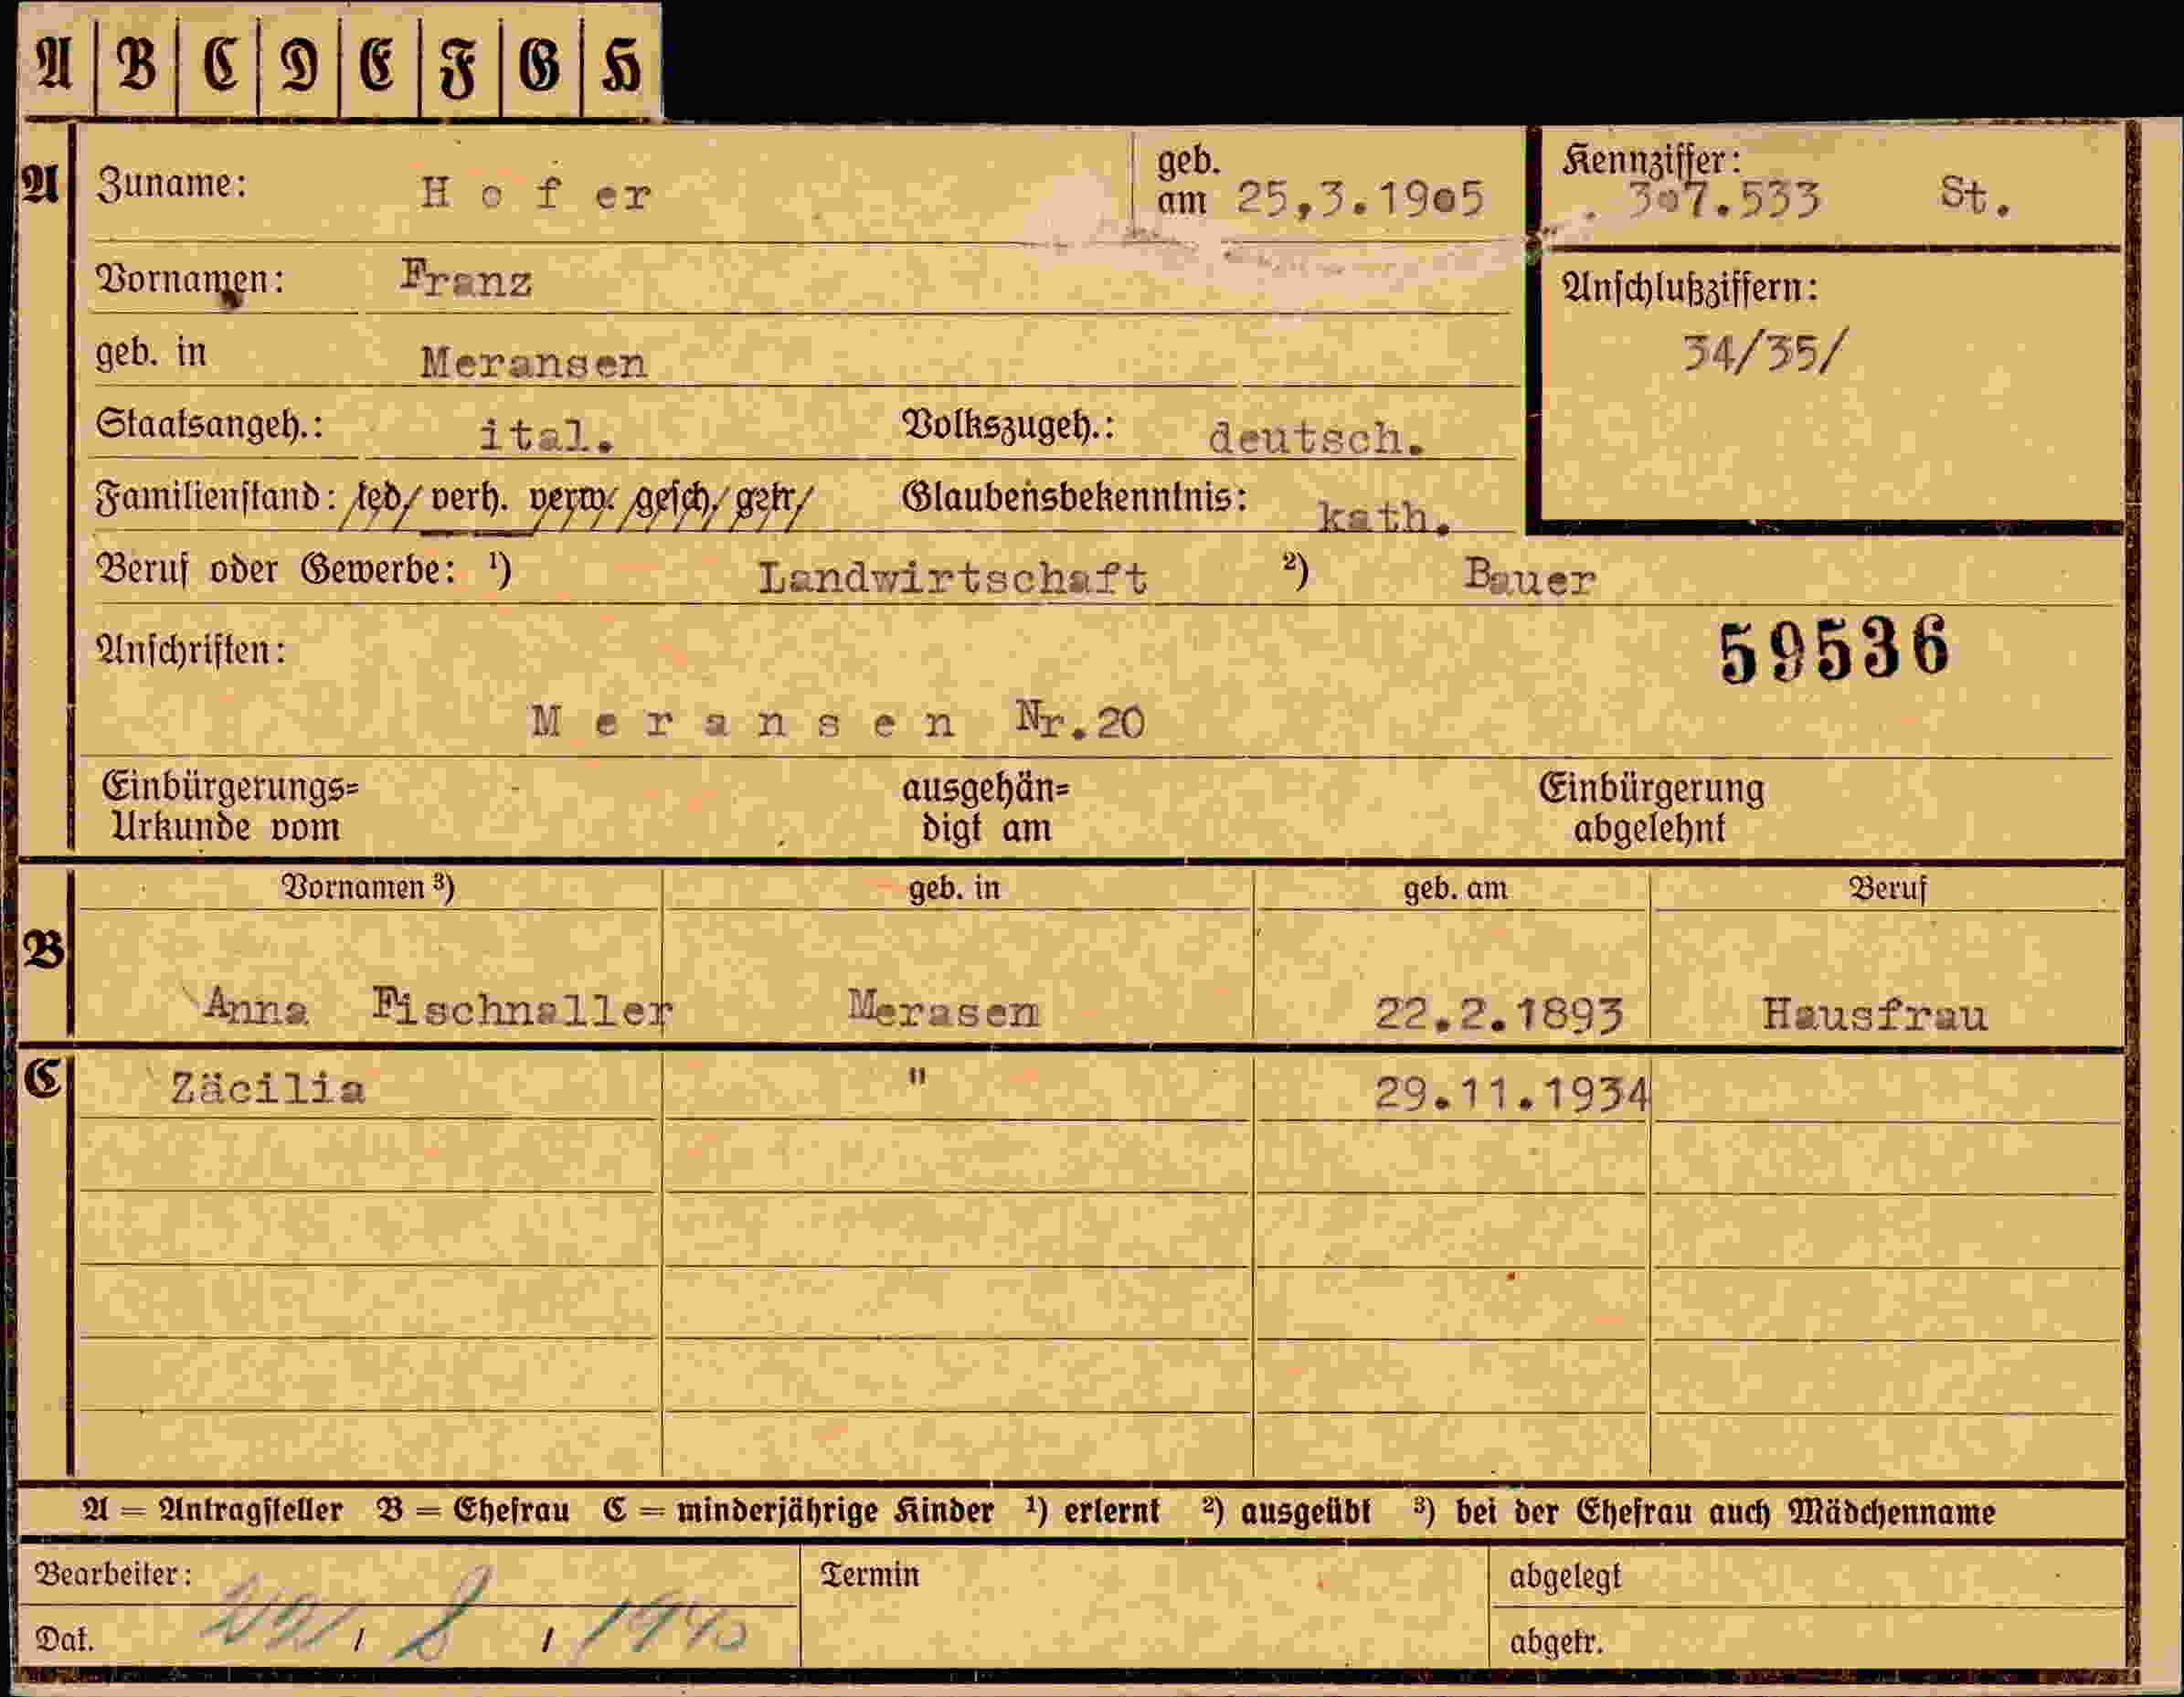 A B C D E F G H
A Zuname: Hofer geb. am 25,3.1905 Kennziffer: . 307.533 St.
Vornamen: Franz
Anschlußziffern:
geb. in Meransen 34/35/
Staatsangeh.: ital. Volkszugeh.: deutsch.
Familienstand: led/ verh. verw. gesch/ getr/ Glaubensbekenntnis: kath.
Beruf oder Gewerbe: ¹) Landwirtschaft ²) Bauer
Anschriften: 59536
Meransen Nr.20
Einbürgerungs= ausgehän= Einbürgerung
Urkunde vom digt am abgelehnt
Vornamen ³) geb. in geb. am Beruf
B
Anna Fischnaller Merasen 22.2.1893 Hausfrau
C Zäcilia " 29.11.1934
A = Antragsteller B = Ehefrau C = minderjährige Kinder ¹) erlernt ²) ausgeübt ³) bei der Ehefrau auch Mädchenname
Bearbeiter: Termin abgelegt
Dat. / 8 / 1940 abgetr.